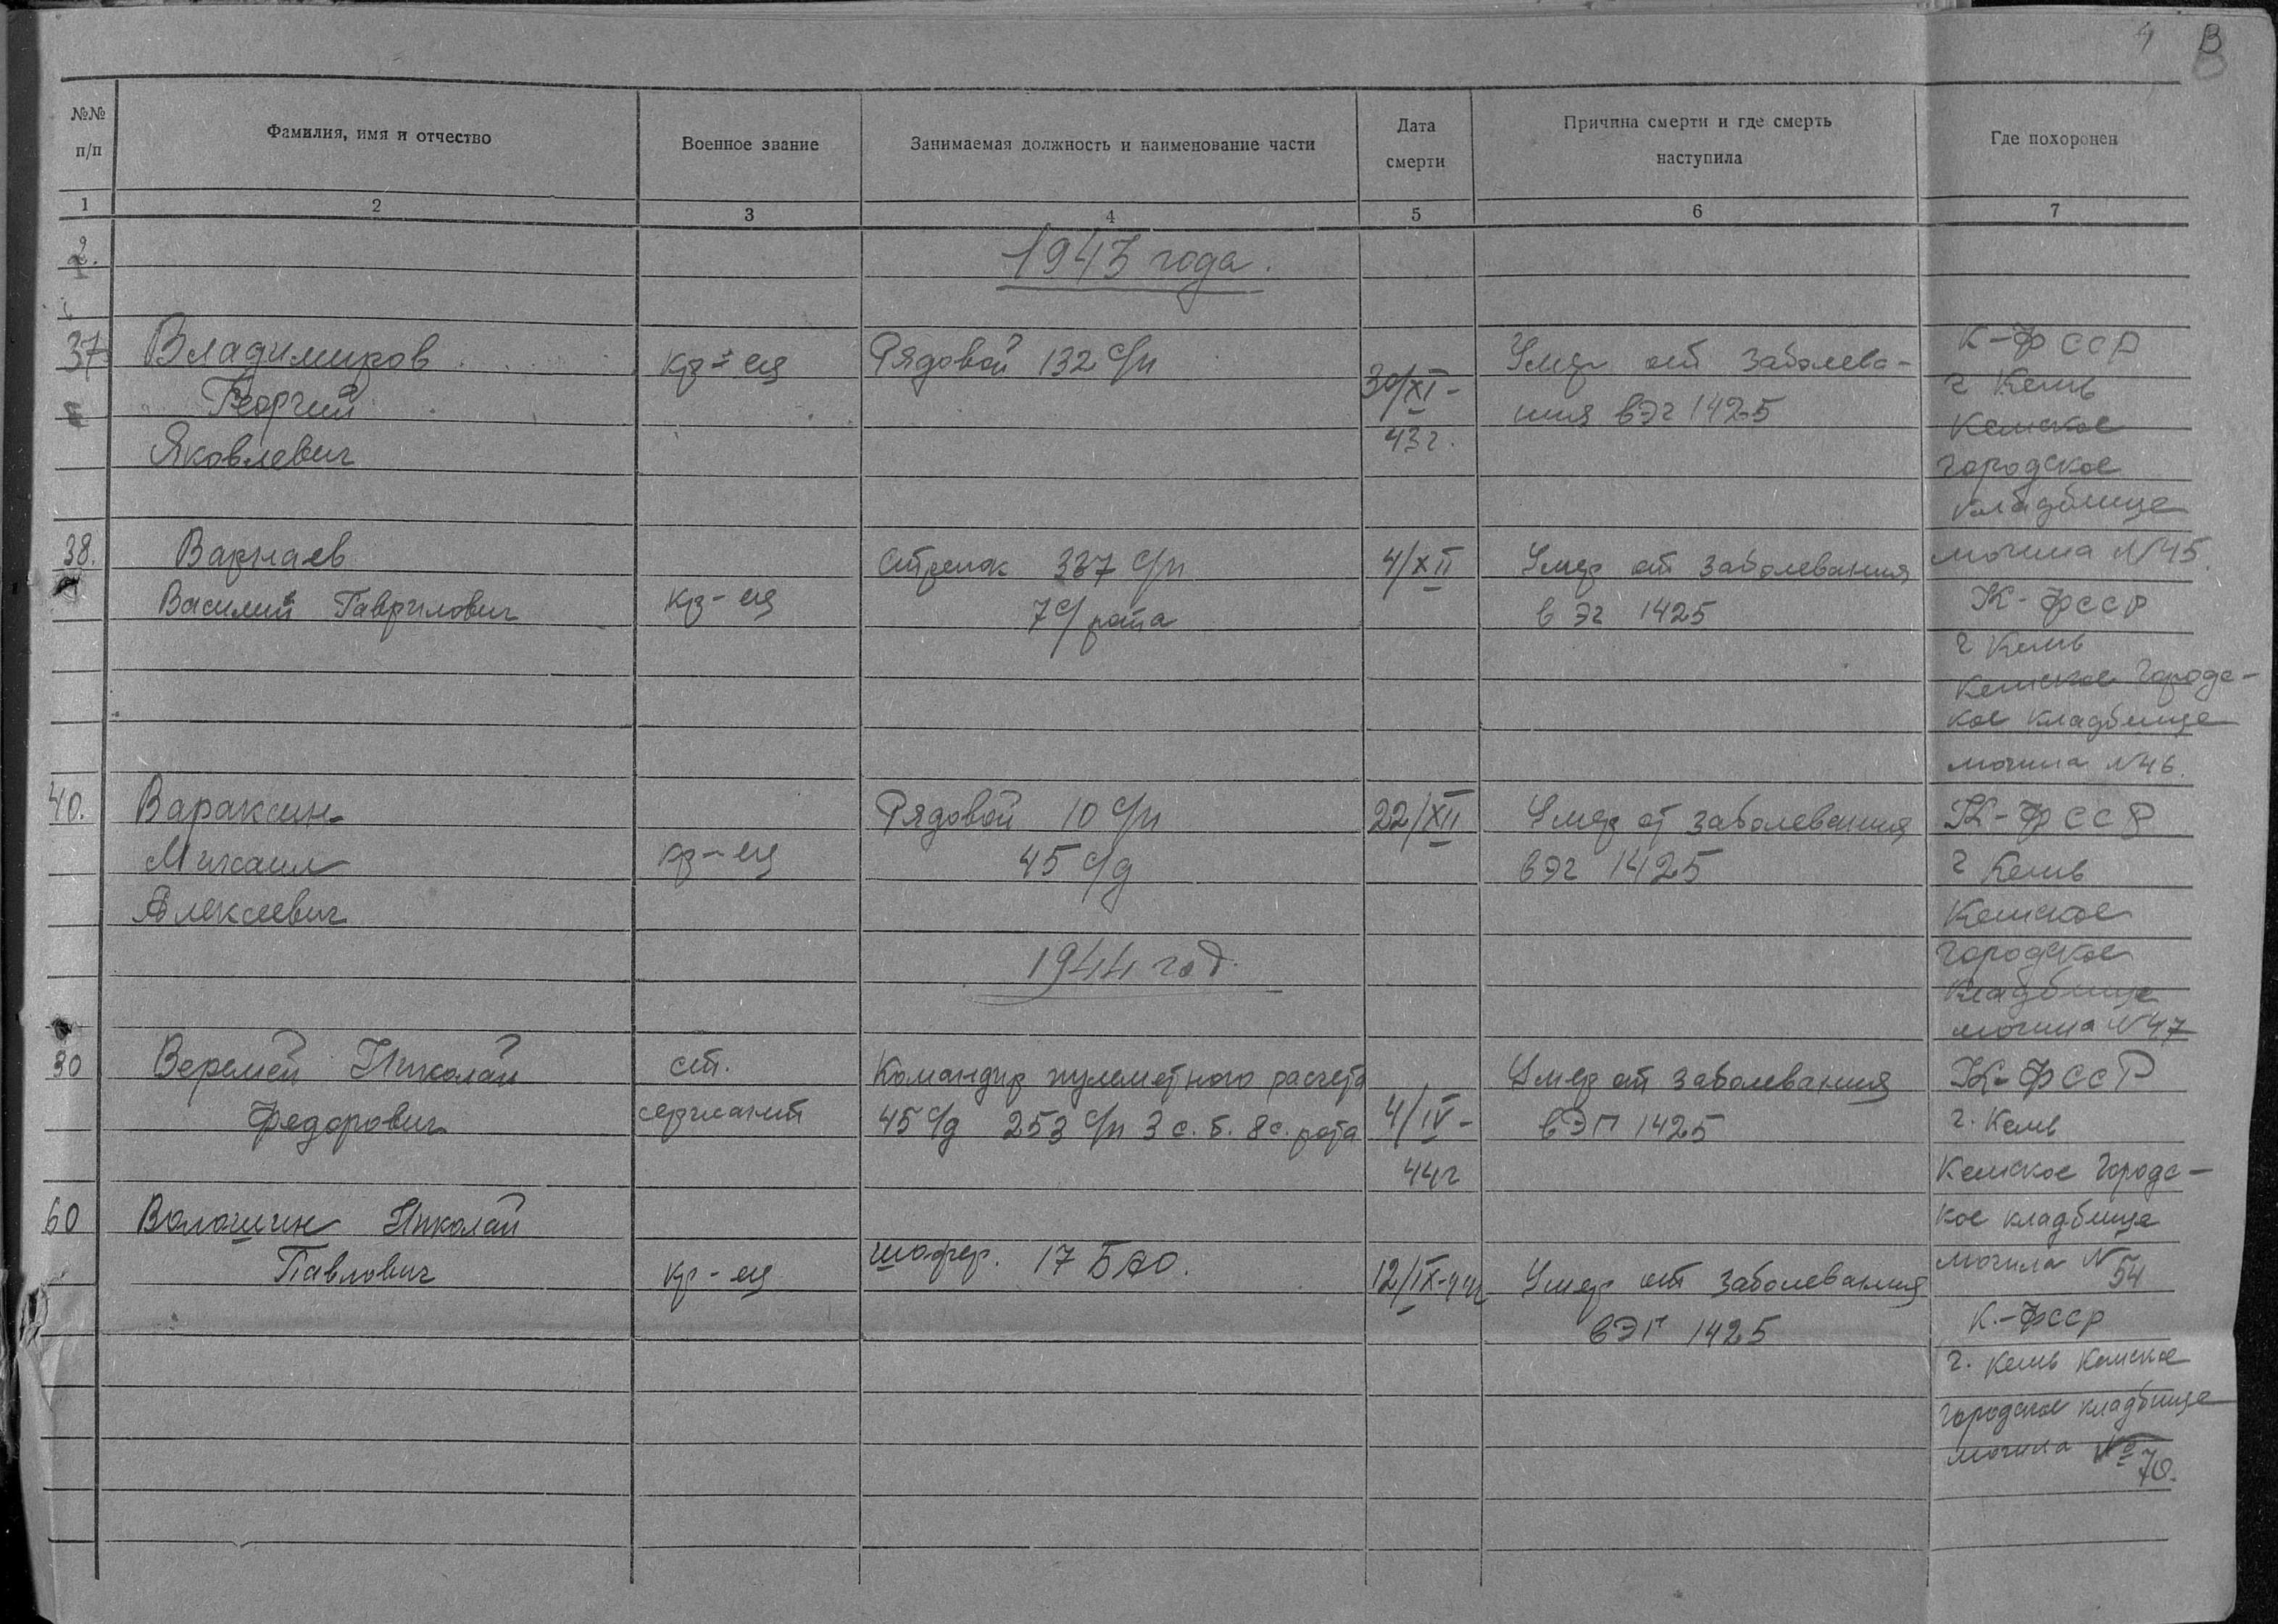 4 В
№№ п/п
Фамилия, имя и отчество
Военное звание
Занимаемая должность и наименование части
Дата смерти
Причина смерти и где смерть наступила
Где похоронен
1 2 3 4 5 6 7
2.
1943 года.
37 Владимиров
Георгий
Яковлевич
кр-ец
Рядовой 132 с/п
30/XI-
43 г.
Умер от заболева-
ния в ЭГ 1425
К-ФССР
г Кемь
Кемское
городское
кладбище
могила N 45.
38. Варнаев
Василий Гаврилович
кр-ец
Стрелок 337 с/п
7 с/рота
4/XII
Умер от заболевания
в ЭГ 1425
К-ФССР
г Кемь
Кемское городс-
кое кладбище
могила N 46.
40. Вараксин
Михаил
Алексеевич
кр-ец
Рядовой 10 с/п
45 с/д
22/XII
Умер от заболевания
в ЭГ 1425
К-ФССР
г Кемь
Кемское
городское
кладбище
могила N 47
1944 год.
30 Веремей Николай
Федорович
ст.
сержант
Командир пулеметного расчета
45 с/д 253 с/п 3 с. б. 8 с. рота
4/IV-
44 г
Умер от заболевания
в ЭГ 1425
К-ФССР
г. Кемь
Кемское городс-
кое кладбище
могила N
54
60 Волошин Николай
Павлович
кр-ец
шофер. 17 БАО.
12/IX-44
Умер от заболевания
в ЭГ 1425
К.-ФССР
г. Кемь Кемское
городское кладбище
могила №
70.